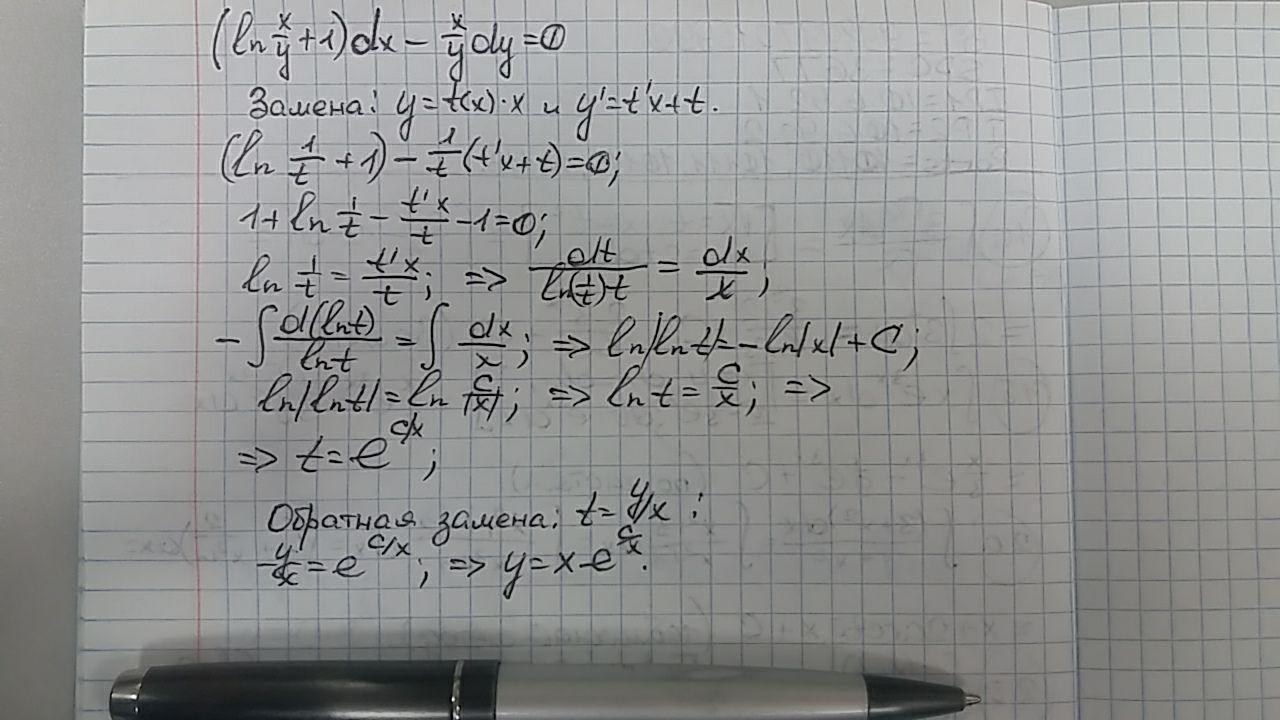 (ln x/y + 1)dx − x/y dy = 0
Замена: y = t(x)·x и y' = t'x + t.
(ln 1/t + 1) − 1/t (t'x + t) = 0;
1 + ln 1/t − t'x/t − 1 = 0;
ln 1/t = t'x/t; => dt/(ln(1/t)·t) = dx/x;
− ∫ d(ln t)/ln t = ∫ dx/x; => ln|ln t| = − ln|x| + C;
ln|ln t| = ln C/|x|; => ln t = C/x; =>
=> t = e^(C/x);
Обратная замена: t = y/x :
y/x = e^(C/x); => y = x·e^(C/x).